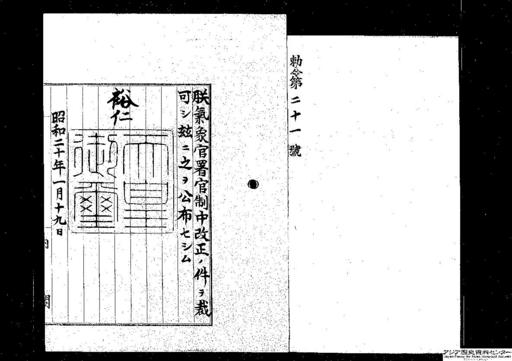 勅令第二十一號
朕氣象官署官制中改正ノ件ヲ裁
可シ玆ニ之ヲ公布セシム
裕仁
天皇御璽
昭和二十年一月十九日
内閣
アジア歴史資料センター